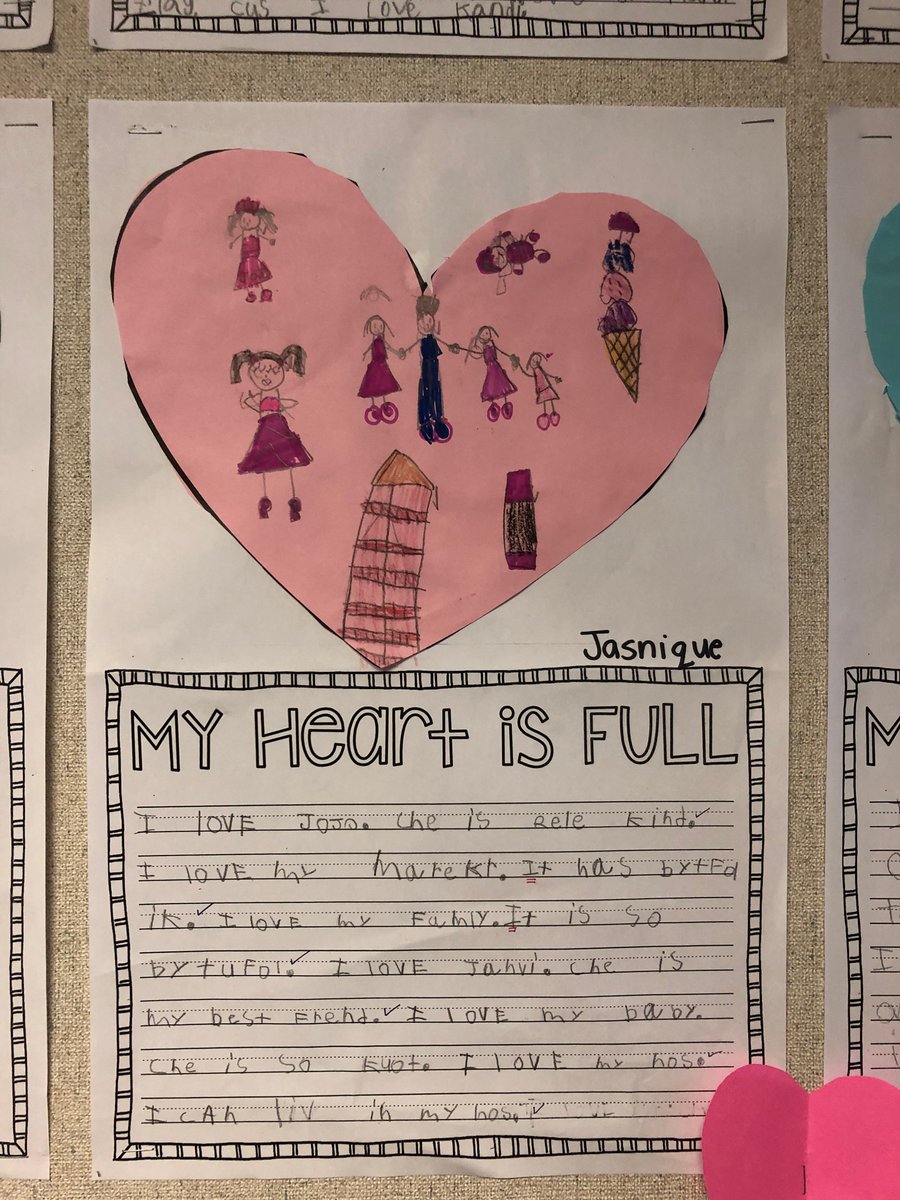 play cus I love Kandi
Jasnique
MY HeArt iS FULL
I LOVE JOJO. Che is Rele kind.
I LOVE my Marekr. It has bytfol
ik. I love my Famly. It is so
bytufol. I LOVE Jahvi. Che is
my best Frend. I LOVE my baby.
Che is so kyot. I LOVE my hos.
I cAn liv in my hos.
M
I